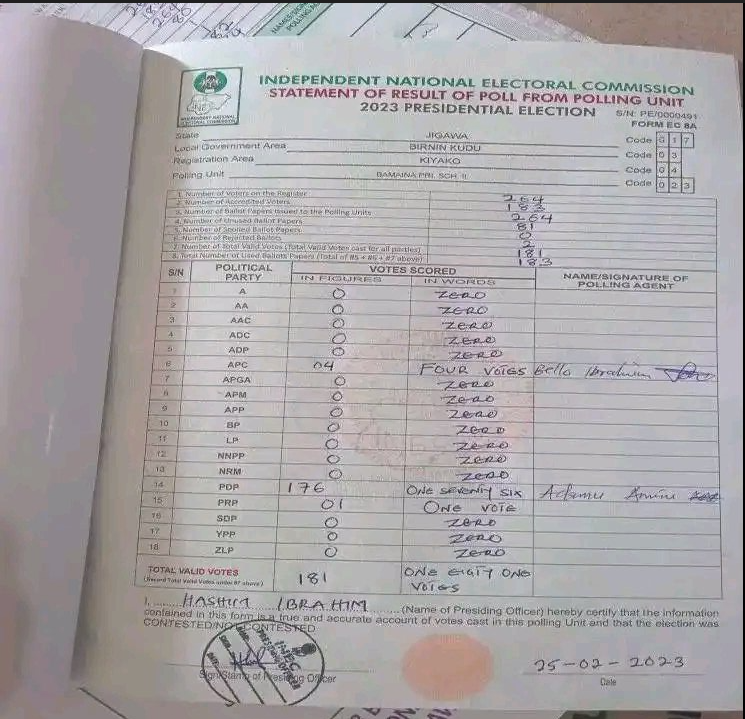 INDEPENDENT NATIONAL ELECTORAL COMMISSION
STATEMENT OF RESULT OF POLL FROM POLLING UNIT
2023 PRESIDENTIAL ELECTION S/N: PE/0000491
FORM EC 8A
State JIGAWA Code 0 1 7
Local Government Area BIRNIN KUDU Code 0 3
Registration Area KIYAKO Code 0 4
Polling Unit BAMAINA PRI. SCH. II Code 0 2 3
1. Number of Voters on the Register 264
2. Number of Accredited Voters 183
3. Number of Ballot Papers Issued to the Polling Units 264
4. Number of Unused Ballot Papers 81
5. Number of Spoiled Ballot Papers 0
6. Number of Rejected Ballots 2
7. Number of Total Valid Votes (Total Valid Votes cast for all parties) 181
8. Total Number of Used Ballots Papers (Total of #5 + #6 + #7 above) 183
S/N POLITICAL PARTY VOTES SCORED NAME/SIGNATURE OF POLLING AGENT
IN FIGURES IN WORDS
1 A 0 ZERO
2 AA 0 ZERO
3 AAC 0 ZERO
4 ADC 0 ZERO
5 ADP 0 ZERO
6 APC 04 FOUR VOTES Bello Ibrahim
7 APGA 0 ZERO
8 APM 0 ZERO
9 APP 0 ZERO
10 BP 0 ZERO
11 LP 0 ZERO
12 NNPP 0 ZERO
13 NRM 0 ZERO
14 PDP 176 ONE SEVENTY SIX Adamu Aminu
15 PRP 01 ONE VOTE
16 SDP 0 ZERO
17 YPP 0 ZERO
18 ZLP 0 ZERO
TOTAL VALID VOTES 181 ONE EIGTY ONE
(Record Total Valid Votes under #7 above) VOTES
I, HASHIM IBRAHIM (Name of Presiding Officer) hereby certify that the information
contained in this form is a true and accurate account of votes cast in this polling Unit and that the election was
CONTESTED/NOT CONTESTED
25-02-2023
Sign/Stamp of Presiding Officer Date